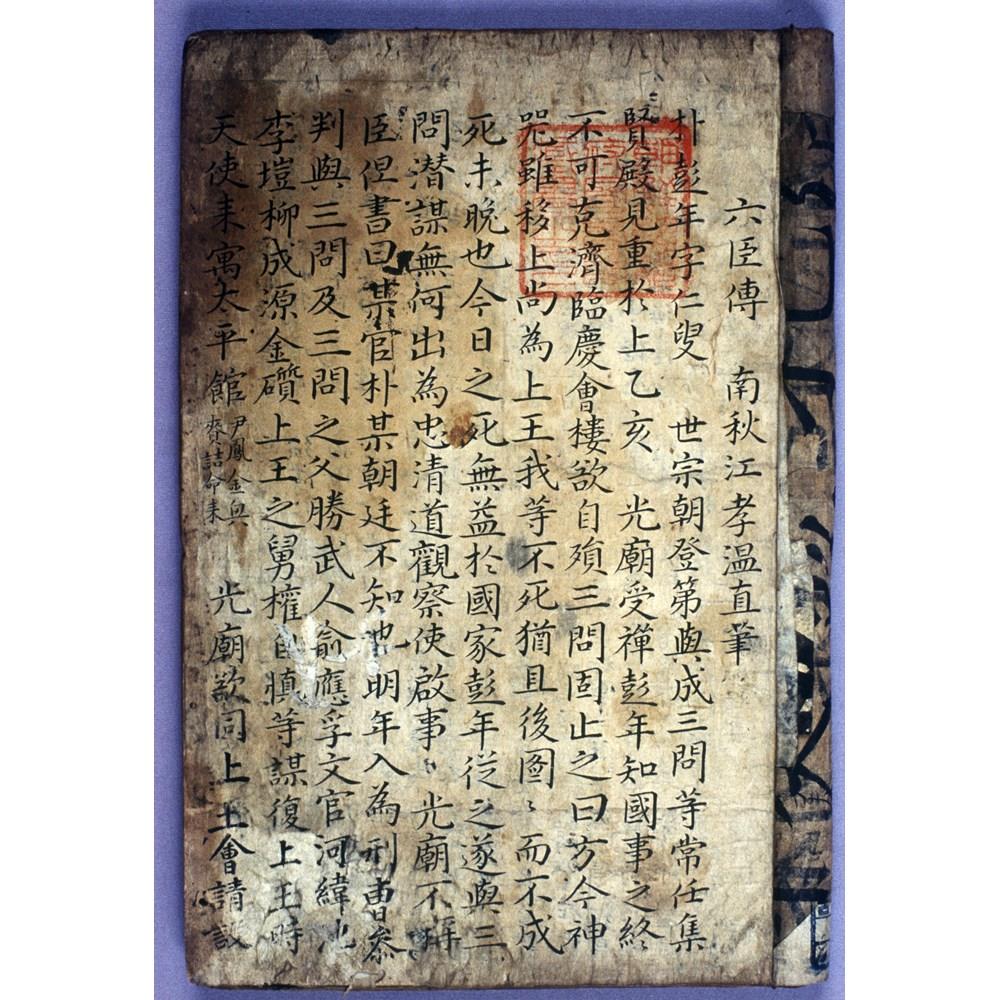 六臣傳 南秋江孝溫直筆
朴彭年字仁叟 世宗朝登第與成三問等常任集
賢殿見重於上乙亥 光廟受禪彭年知國事之終
不可克濟臨慶會樓欲自殞三問固止之曰方今神
咒雖移上尚為上王我等不死猶且後圖〻而不成
死未晩也今日之死無益於國家彭年從之遂與三
問潜謀無何出為忠清道觀察使啟事 光廟不稱
臣但書曰某官朴某朝廷不知也明年入為刑曹叅
判與三問及三問之父勝武人俞應孚文官河緯地
李塏柳成源金礩上王之舅權自愼等謀復上王時
天使来寓太平館 尹鳳金興賫詰命来 光廟欲同上王會請設